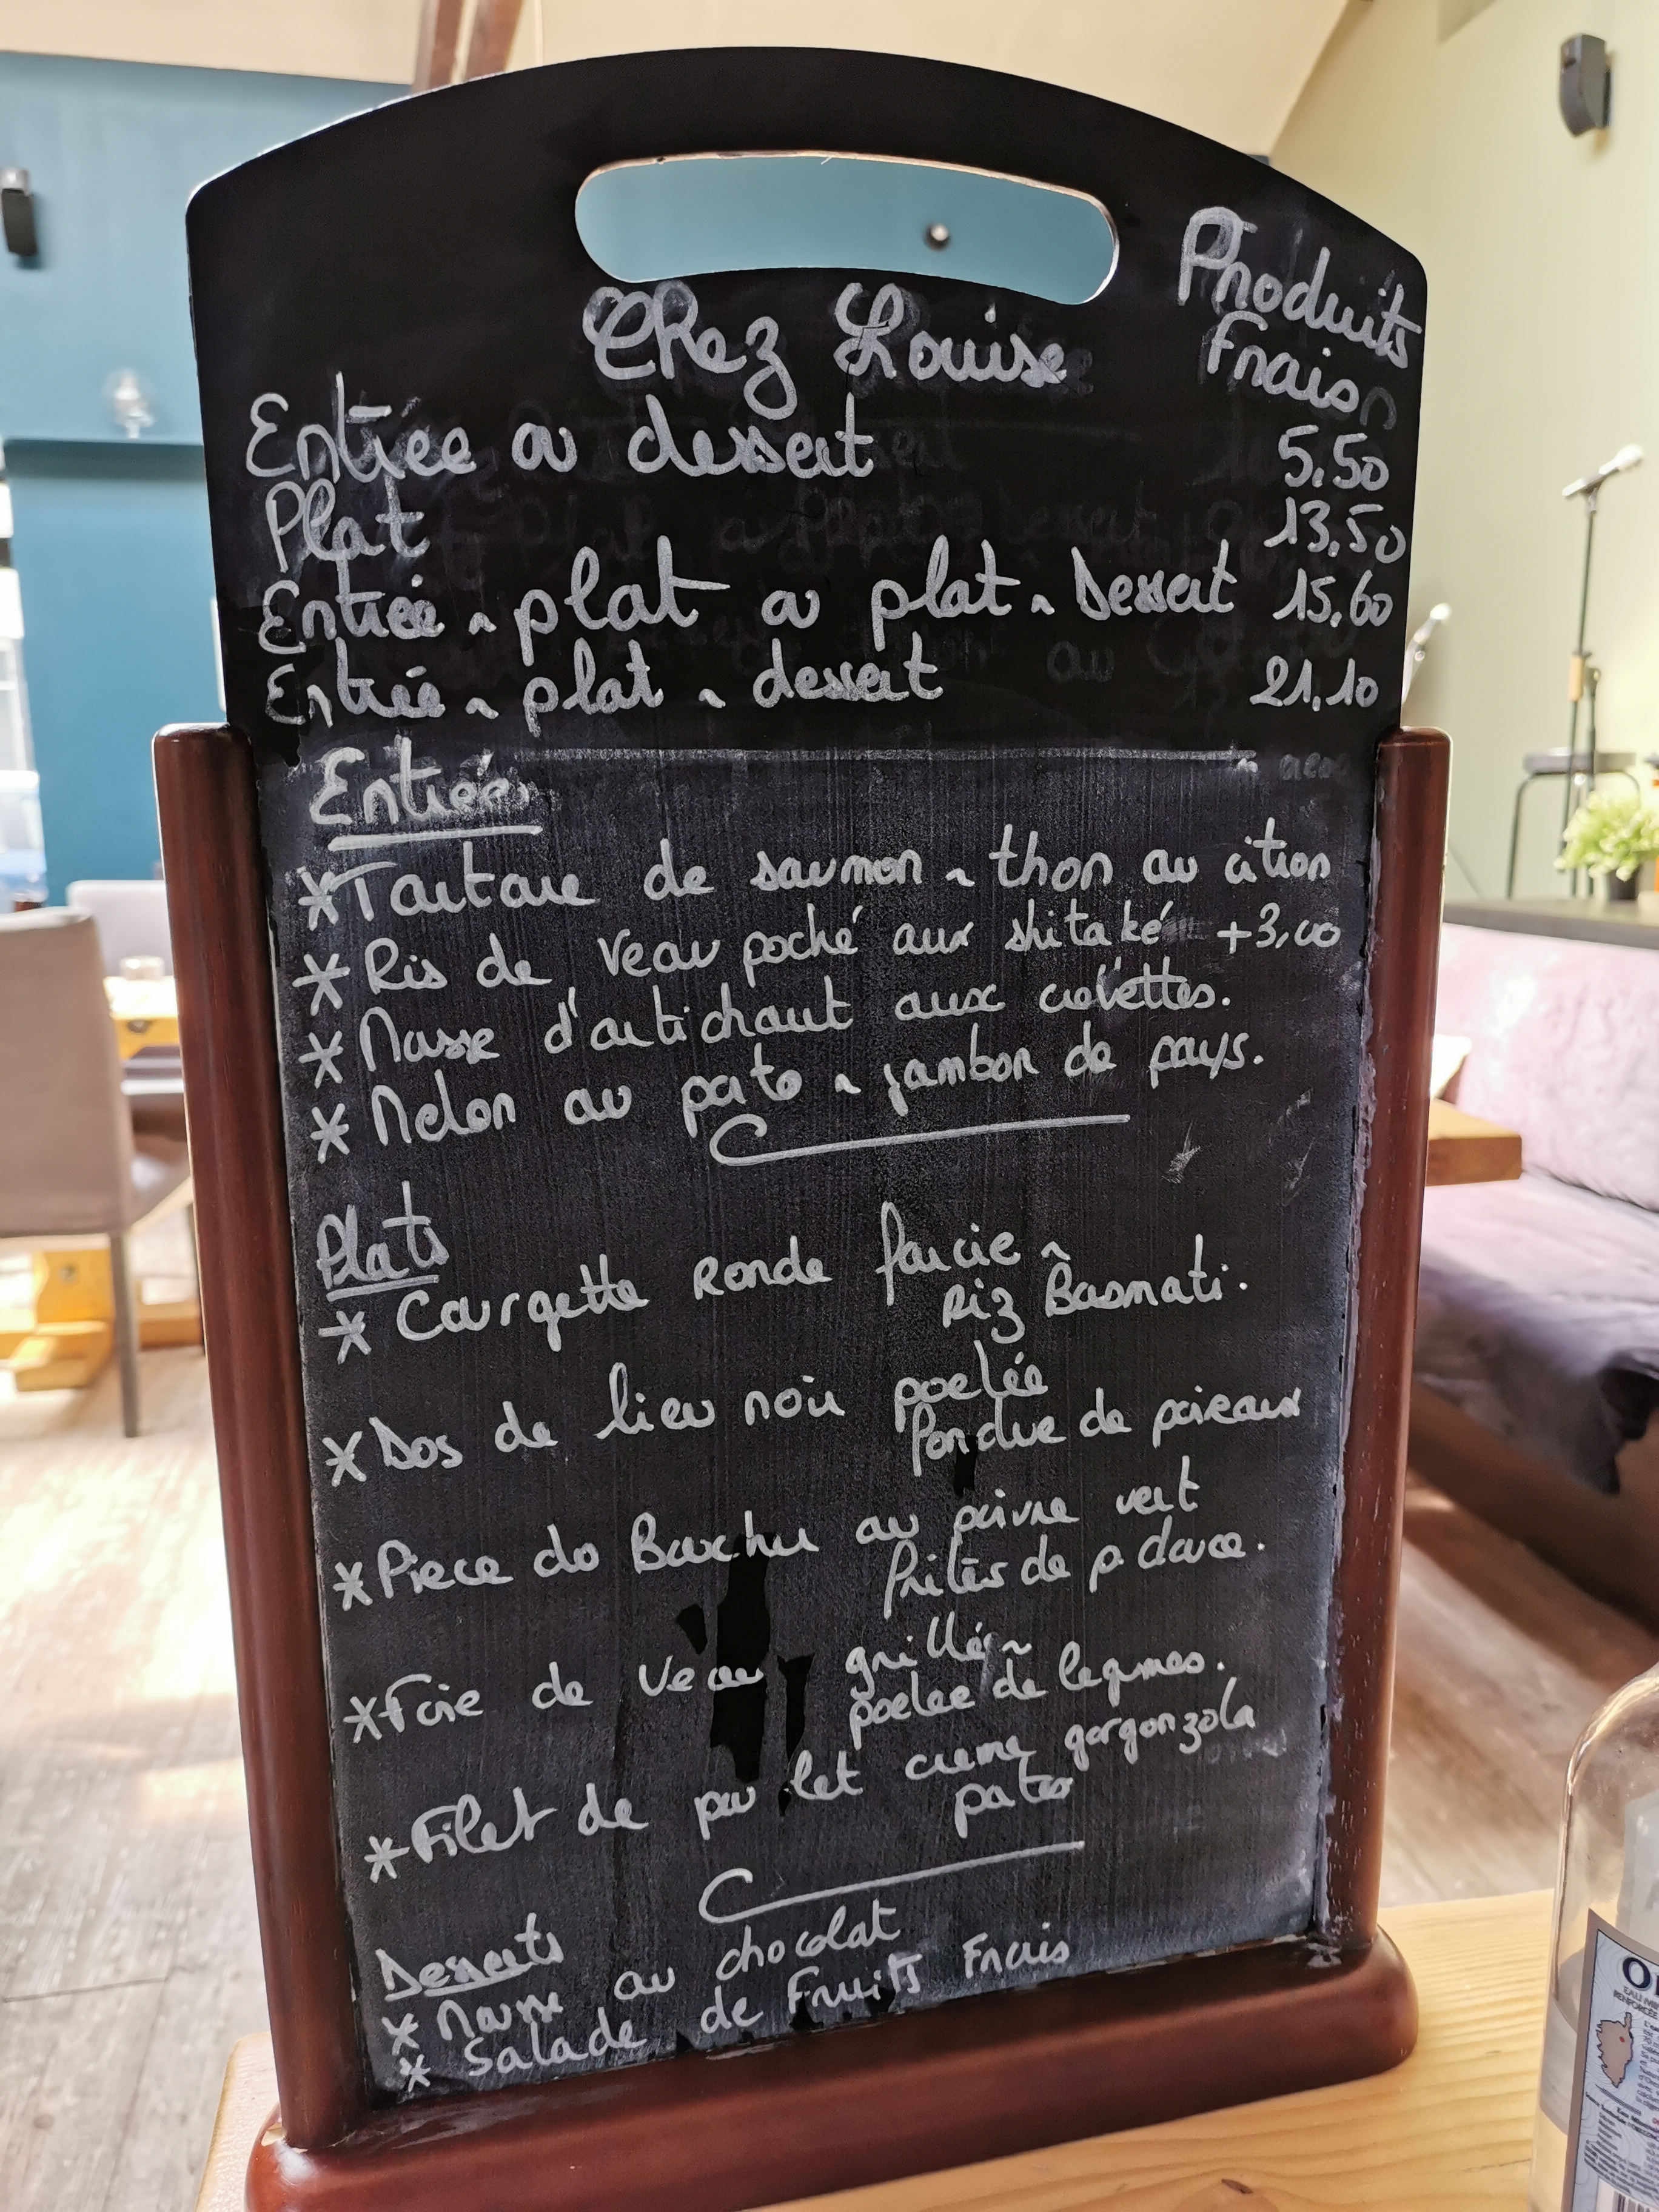 Chez Louise
Produits
Frais
Entrée ou dessert 5.50
Plat 13.50
Entrée ~ plat ou plat ~ Dessert 15,60
Entrée ~ plat ~ dessert 21,10
Entrée
* Tartare de saumon ~ thon au citron
* Ris de veau poché aux shitaké +3,00
* Mousse d'artichaut aux crevettes.
* Melon au porto ~ jambon de pays.
Plats
* Courgette Ronde farcie ~
Riz Basmati.
* Dos de lieu noir poelée
fondue de poireaux
* Piece du Boucher au poivre vert
frites de p. douce.
* Foie de veau grillé ~
poelee de legumes.
* Filet de poulet creme gorgonzola
pates
Desserts
* Mousse au chocolat
* Salade de Fruits Frais